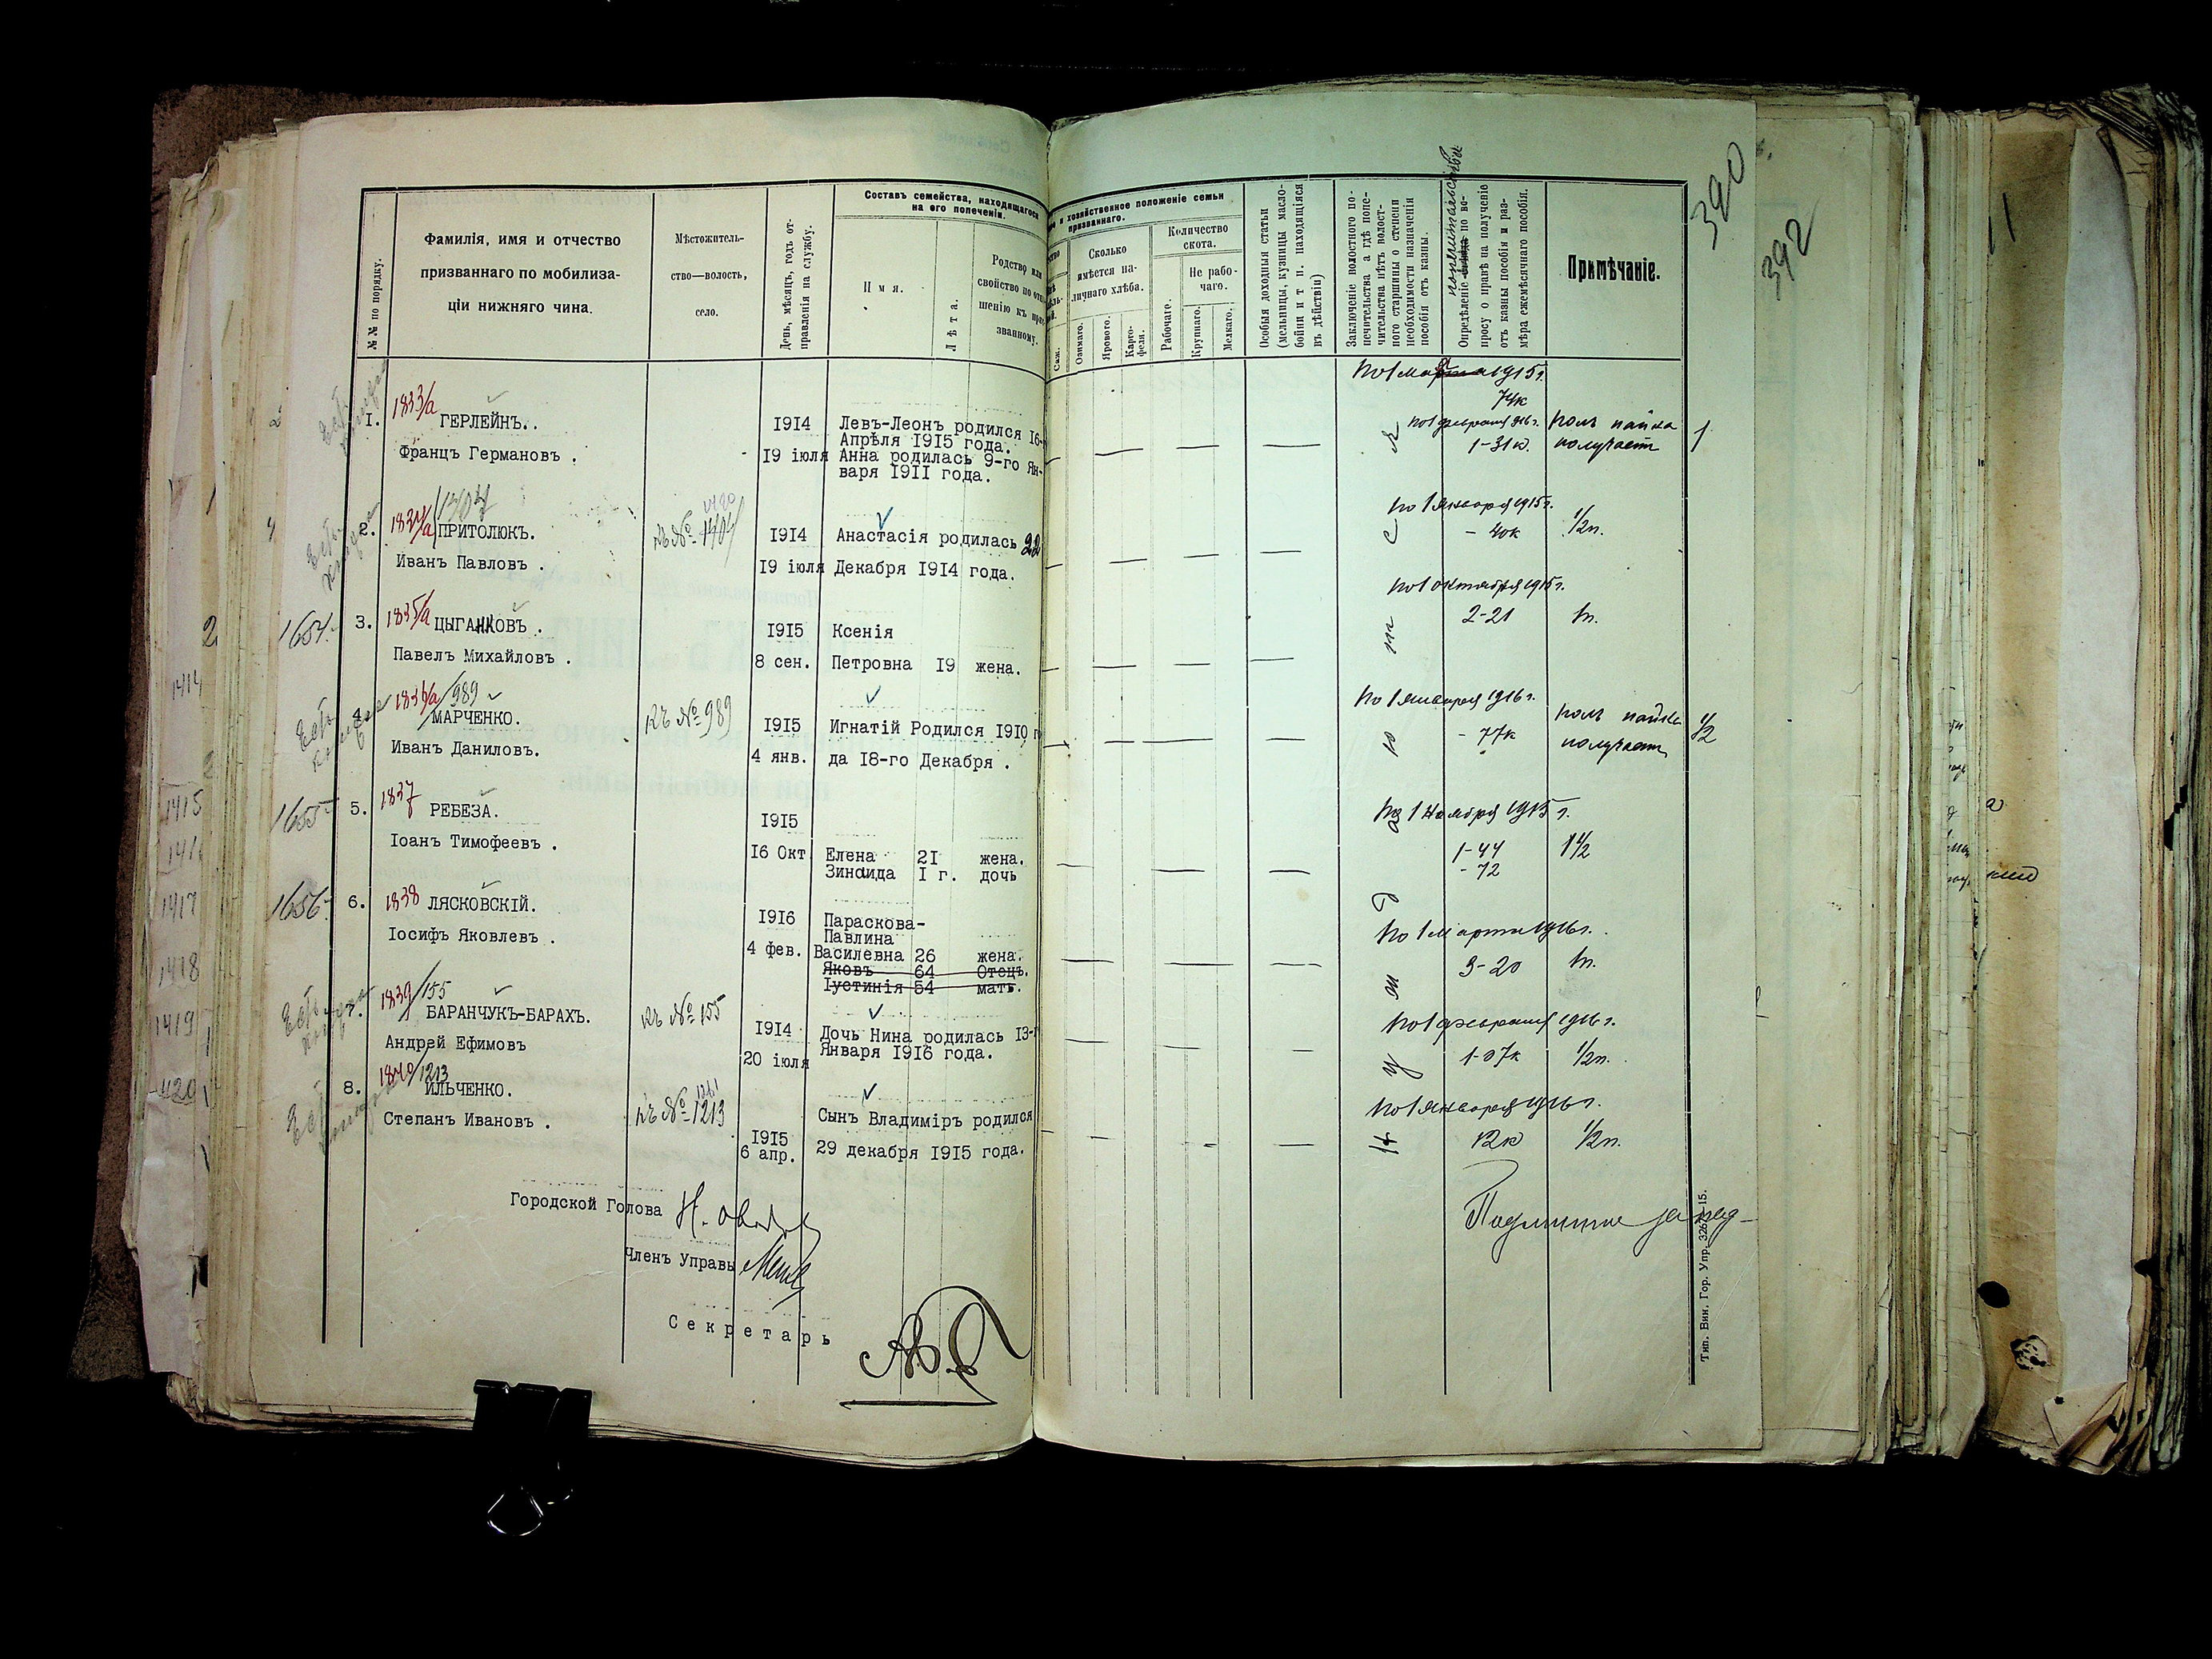 390
392
№№ по порядку.
Фамилія, имя и отчество
призваннаго по мобилиза-
ціи нижняго чина.
Мѣстожитель-
ство—волость,
село.
День, мѣсяцъ, годъ от-
правленія на службу.
Составъ семейства, находящагося
на его попеченіи.
Имя.
Лѣта.
Родство или
свойство по отн
шенію къ при
званному.
и хозяйственное положеніе семьи
призваннаго.
Саж.
Сколько
имѣется на-
личнаго хлѣба.
Озимаго.
Ярового.
Карто-
феля.
Количество
скота.
Рабочаго.
Не рабо-
чаго.
Крупнаго.
Мелкаго.
Особыя доходныя статьи
(мельницы, кузницы масло-
бойни и т п. находящіяся
въ дѣйствіи)
Заключеніе волостного по-
печительства а гдѣ попе-
чительства нѣтъ волост-
ного старшины о степени
необходимости назначенія
пособія отъ казны.
попечительства
Опредѣленіе по во-
просу о правѣ на полученіе
отъ казны пособія и раз-
мѣра ежемѣсячнаго пособія.
Примѣчаніе.
1. 1833/а ГЕРЛЕЙНЪ..
Францъ Германовъ .
1914
19 іюля
Левъ-Леонъ родился 16-
Апрѣля 1915 года.
Анна родилась 9-го Ян-
варя 1911 года.
74к
1-31к.
полъ пайка
получает
1
2. 1834/а ПРИТОЛЮКЪ.
Иванъ Павловъ .
къ №
1914
19 іюля
Анастасія родилась 22
Декабря 1914 года.
по 1 января 1915 г.
- 40к
1/2п.
1654.
3. 1835/а ЦЫГАНКОВЪ .
Павелъ Михайловъ .
1915
8 сен.
Ксенія
Петровна 19 жена.
по 1 октября 1915 г.
2-21
1п.
4. 1836/а/989
МАРЧЕНКО.
Иванъ Даниловъ.
къ № 989
1915
4 янв.
Игнатій Родился 1910 г
да 18-го Декабря .
по 1 января 1916 г.
- 77к
полъ пайка
получает
1/2
1655
5. 1837 РЕБЕЗА.
Іоанъ Тимофеевъ .
1915
16 Окт
Елена 21 жена.
Зинаида 1 г. дочь
1 Ноября 1915 г.
1-44
- 72
1 1/2
1656.
6. 1838 ЛЯСКОВСКІЙ.
Іосифъ Яковлевъ .
1916
4 фев.
Параскова-
Павлина
Василевна 26 жена.
Яковъ 64 Отецъ.
Іустинія 54 мать.
по 1 марта 1916 г.
3-20
1п.
7. 1839/155
БАРАНЧУКЪ-БАРАХЪ.
Андрей Ефимовъ
къ № 155
1914
20 іюля
Дочь Нина родилась 13-г
Января 1916 года.
по 1 февраля 1916 г.
1-07к
1/2п.
8. 1840/1213
ИЛЬЧЕНКО.
Степанъ Ивановъ .
къ № 1213
1915
6 апр.
Сынъ Владиміръ родился
29 декабря 1915 года.
по 1 января 1916 г.
12к
1/2п.
Городской Голова
Членъ Управы
Секретарь
Тип. Вин. Гор. Упр. 3267—15.
1414
1415
1417
1418
1419